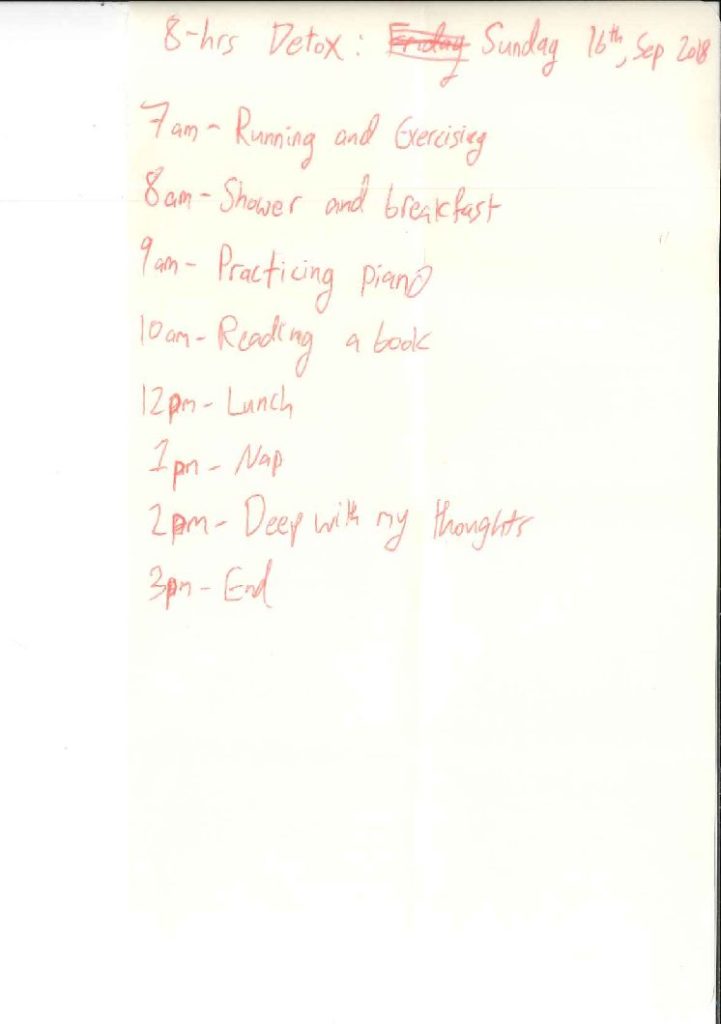 8-hrs Detox: Friday Sunday 16th, Sep 2018
7am - Running and Exercising
8am - Shower and breakfast
9am - Practicing piano
10am - Reading a book
12pm - Lunch
1pm - Nap
2pm - Deep with my thoughts
3pm - End